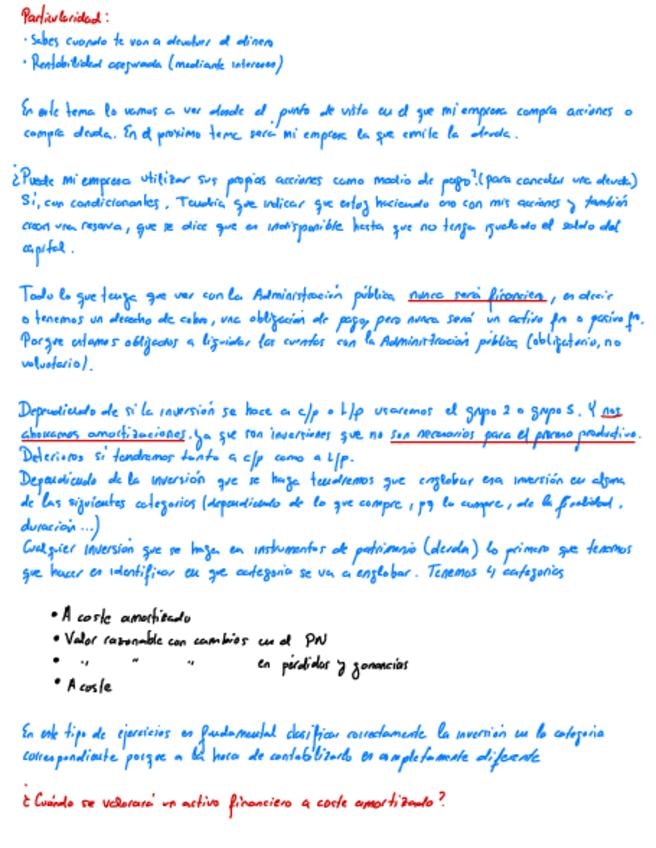 Particularidad:
• Sabes cuando te van a devolver el dinero
• Rentabilidad asegurada (mediante intereses)
En este tema lo vamos a ver desde el punto de vista en el que mi empresa compra acciones o
compra deuda. En el proximo tema será mi empresa la que emite la deuda.
¿Puede mi empresa utilizar sus propias acciones como medio de pago? (para cancelar una deuda)
Sí, con condicionantes. Tendría que indicar que estoy haciendo eso con mis acciones y también
crean una reserva, que se dice que es indisponible hasta que no tenga igualado el saldo del
capital.
Todo lo que tenga que ver con la Administración pública nunca será financiero, es decir
o tenemos un derecho de cobro, una obligación de pago, pero nunca será un activo fn o pasivo fn.
Porque estamos obligados a liquidar las cuentas con la Administración pública (obligatorio, no
voluntario).
Dependiendo de si la inversión se hace a c/p o L/p usaremos el grupo 2 o grupo 5. Y nos
ahorramos amortizaciones. Ya que son inversiones que no son necesarios para el proceso productivo.
Deterioros sí tendremos tanto a c/p como a L/p.
Dependiendo de la inversión que se haga tendremos que englobar esa inversión en alguna
de las siguientes categorías (dependiendo de lo que compre, pq lo compre, de la finalidad,
duración...)
Cualquier inversión que se haga en instrumentos de patrimonio (deuda) lo primero que tenemos
que hacer es identificar en que categoria se va a englobar. Tenemos 4 categorias
• A coste amortizado
• Valor razonable con cambios en el PN
• " " " en pérdidas y ganancias
• A coste
En este tipo de ejercicios es fundamental clasificar correctamente la inversión en la categoria
correspondiente porque a la hora de contabilizarlo es completamente diferente
¿Cuándo se valorará un activo financiero a coste amortizado?